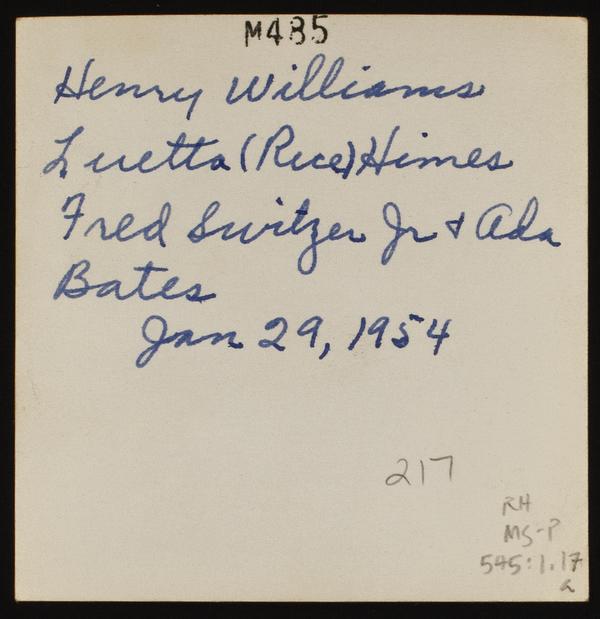 M485
Henry Williams
Luetta (Rice) Himes
Fred Switzer Jr + Ada
Bates
Jan 29, 1954
217
RH
MS-P
545:1.17
a